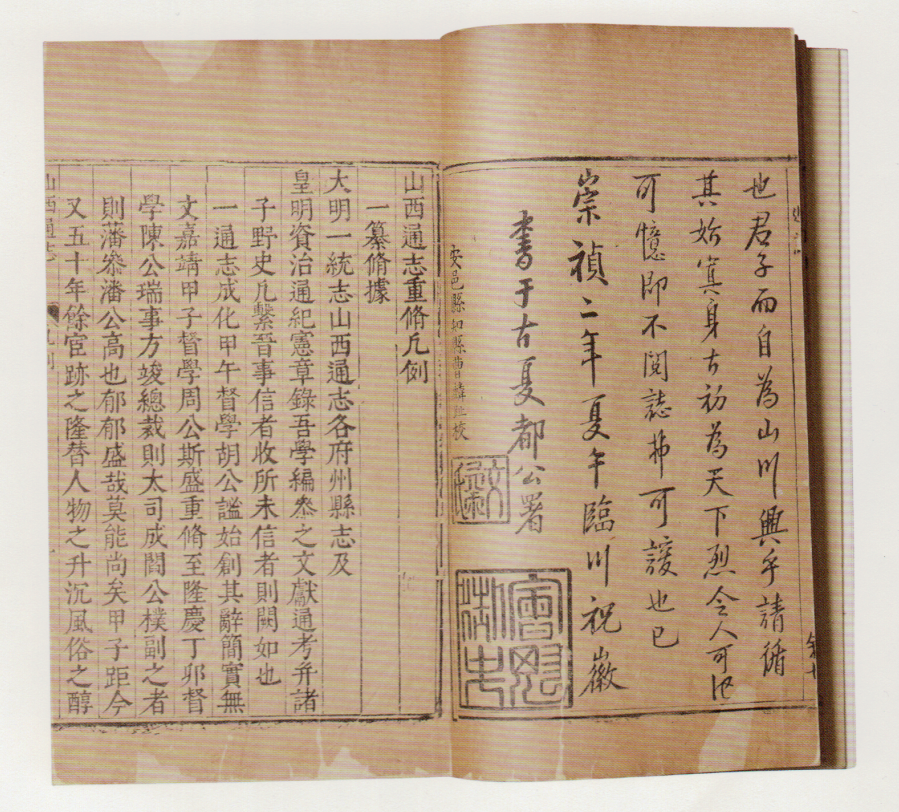 也君子而自為山川興乎請循
其始寞身古初為天下烈令人可
可憶即不閱誌弗可護也已
崇禎二年夏午臨川祝徽
書于古夏都公署
安邑縣知縣曹
山西通志重脩凡例
一纂脩據
大明一統志山西通志各府州縣志及
皇明資治通紀憲章錄吾學編叅之文獻通考并諸
子野史凡繫晉事信者收所未信者則闕如也
一通志成化甲午督學胡公謐始創其辭簡實無
文嘉靖甲子督學周公斯盛重脩至隆慶丁卯督
學陳公瑞事方竣總裁則太司成閻公樸副之者
則藩叅潘公高也郁郁盛哉莫能尚矣甲子距今
又五十年餘宦跡之隆替人物之升沉風俗之醇
山西通志
凡例